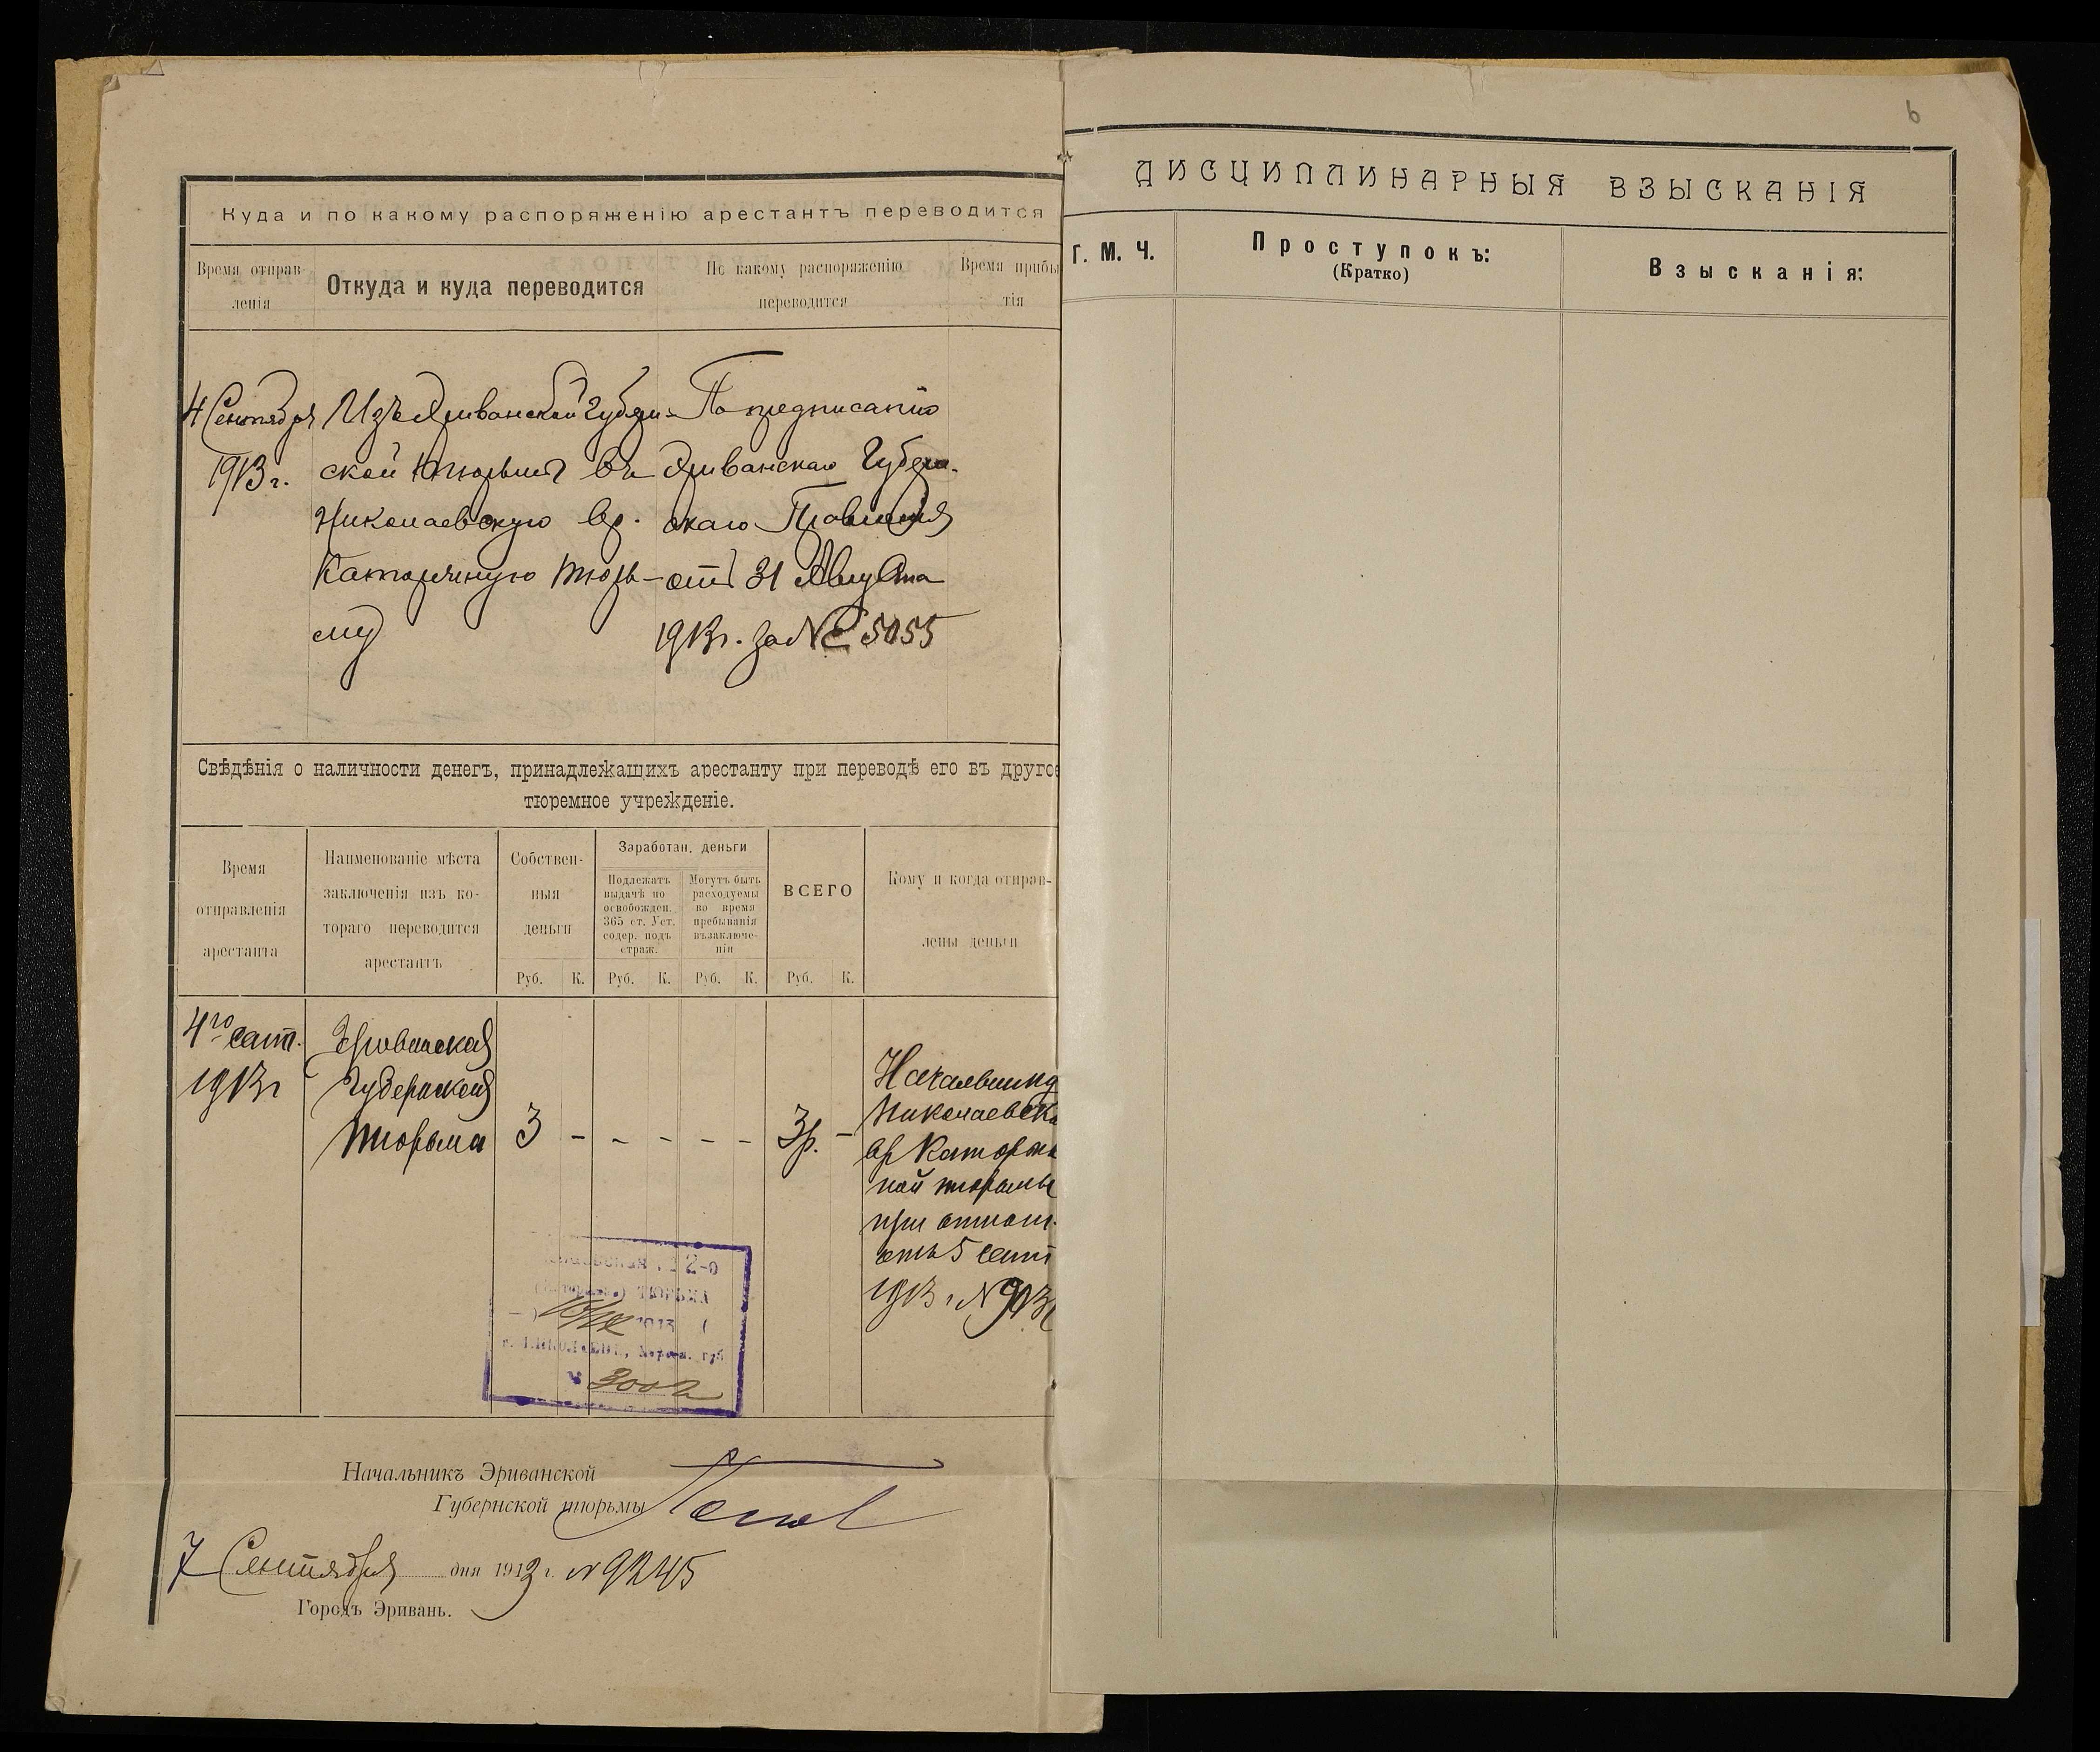 Куда и по какому распоряженію арестантъ переводится
Время отправ-
ленія
Откуда и куда переводится
По какому распоряженію
переводится
Время прибы
тія
4 Сентября
1913 г.
Изъ Эриванской Губерн-
ской тюрьмы въ
Николаевскую вр.
Каторжную тюрь-
му
По предписанію
Эриванскаго Губерн-
скаго Правленія
отъ 31 Августа
1913 г. за № 5055
Свѣдѣнія о наличности денегъ, принадлежащихъ арестанту при переводѣ его въ другое
тюремное учрежденіе.
Время
отправленія
арестанта
Наименованіе мѣста
заключенія изъ ко-
тораго переводится
арестантъ
Собствен-
ныя
деньги
Заработан. деньги
Подлежатъ
выдачѣ по
освобожден.
365 ст. Уст.
содер. подъ
страж.
Могутъ быть
расходуемы
во время
пребыванія
въ заключе-
ніи
ВСЕГО
Кому и когда отправ-
лены деньги
Руб. К. Руб. К. Руб. К. Руб. К.
4го сент.
1913 г
Эриванская
Губернская
тюрьма
3 - - - - - 3р. -
Начальнику
Николаевско
вр Каторж
ной тюрьмы
при отнош.
отъ 5 сент
1913 г. №
2-о
ТЮРЬМА
1913
г. НИКОЛАЕВЪ, Херсон. губ
№ 3002
Начальникъ Эриванской
Губернской тюрьмы
7 Сентября дня 1913 г. № 9245
Городъ Эривань.
6
ДИСЦИПЛИНАРНЫЯ ВЗЫСКАНІЯ
Г. М. Ч.
Проступокъ:
(Кратко)
Взысканія: